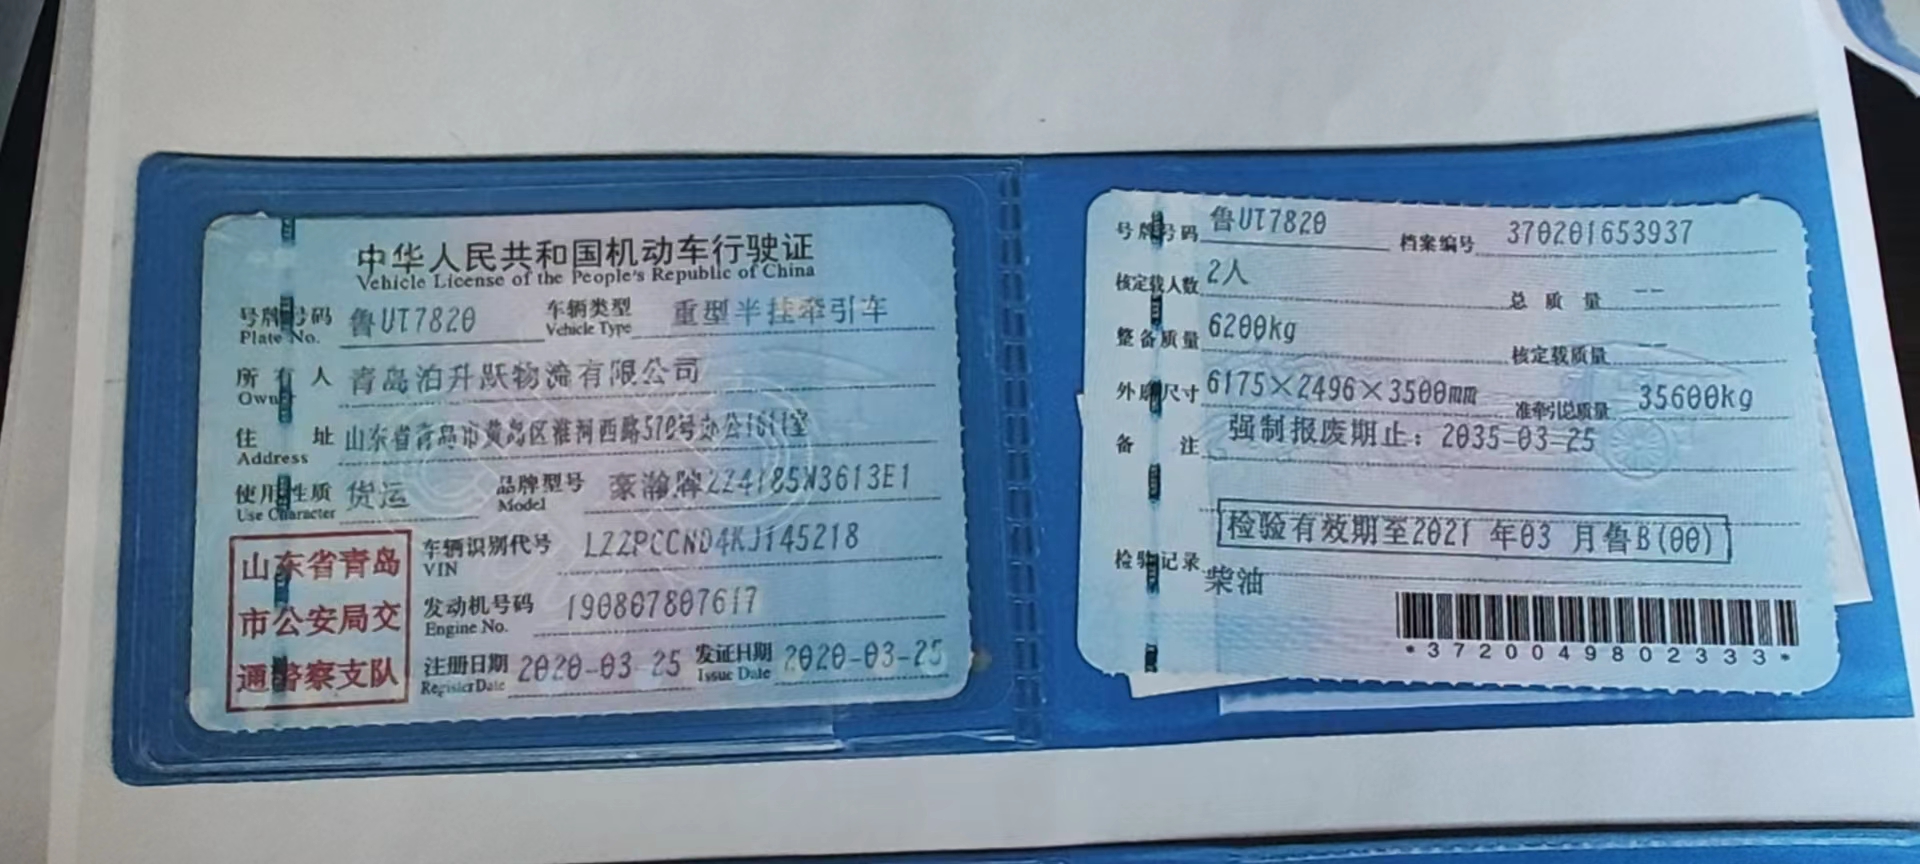 中华人民共和国机动车行驶证
Vehicle License of the People's Republic of China
号牌号码 鲁UT7820 车辆类型 重型半挂牵引车
Plate No. Vehicle Type
所有人 青岛泊升跃物流有限公司
Owner
住址 山东省青岛市黄岛区淮河西路570号办公1611室
Address
使用性质 货运 品牌型号 豪瀚牌ZZ4185N3613E1
Use Character Model
车辆识别代号 LZZPCCND4KJ145218
VIN
发动机号码 190807807617
Engine No.
注册日期 2020-03-25 发证日期 2020-03-25
Register Date Issue Date
山东省青岛
市公安局交
通警察支队
号牌号码 鲁UT7820 档案编号 370201653937
核定载人数 2人 总质量 --
整备质量 6200kg 核定载质量 --
外廓尺寸 6175×2496×3500mm 准牵引总质量 35600kg
备注 强制报废期止：2035-03-25
检验有效期至2021年03月鲁B(00)
检验记录
柴油
*3720049802333*